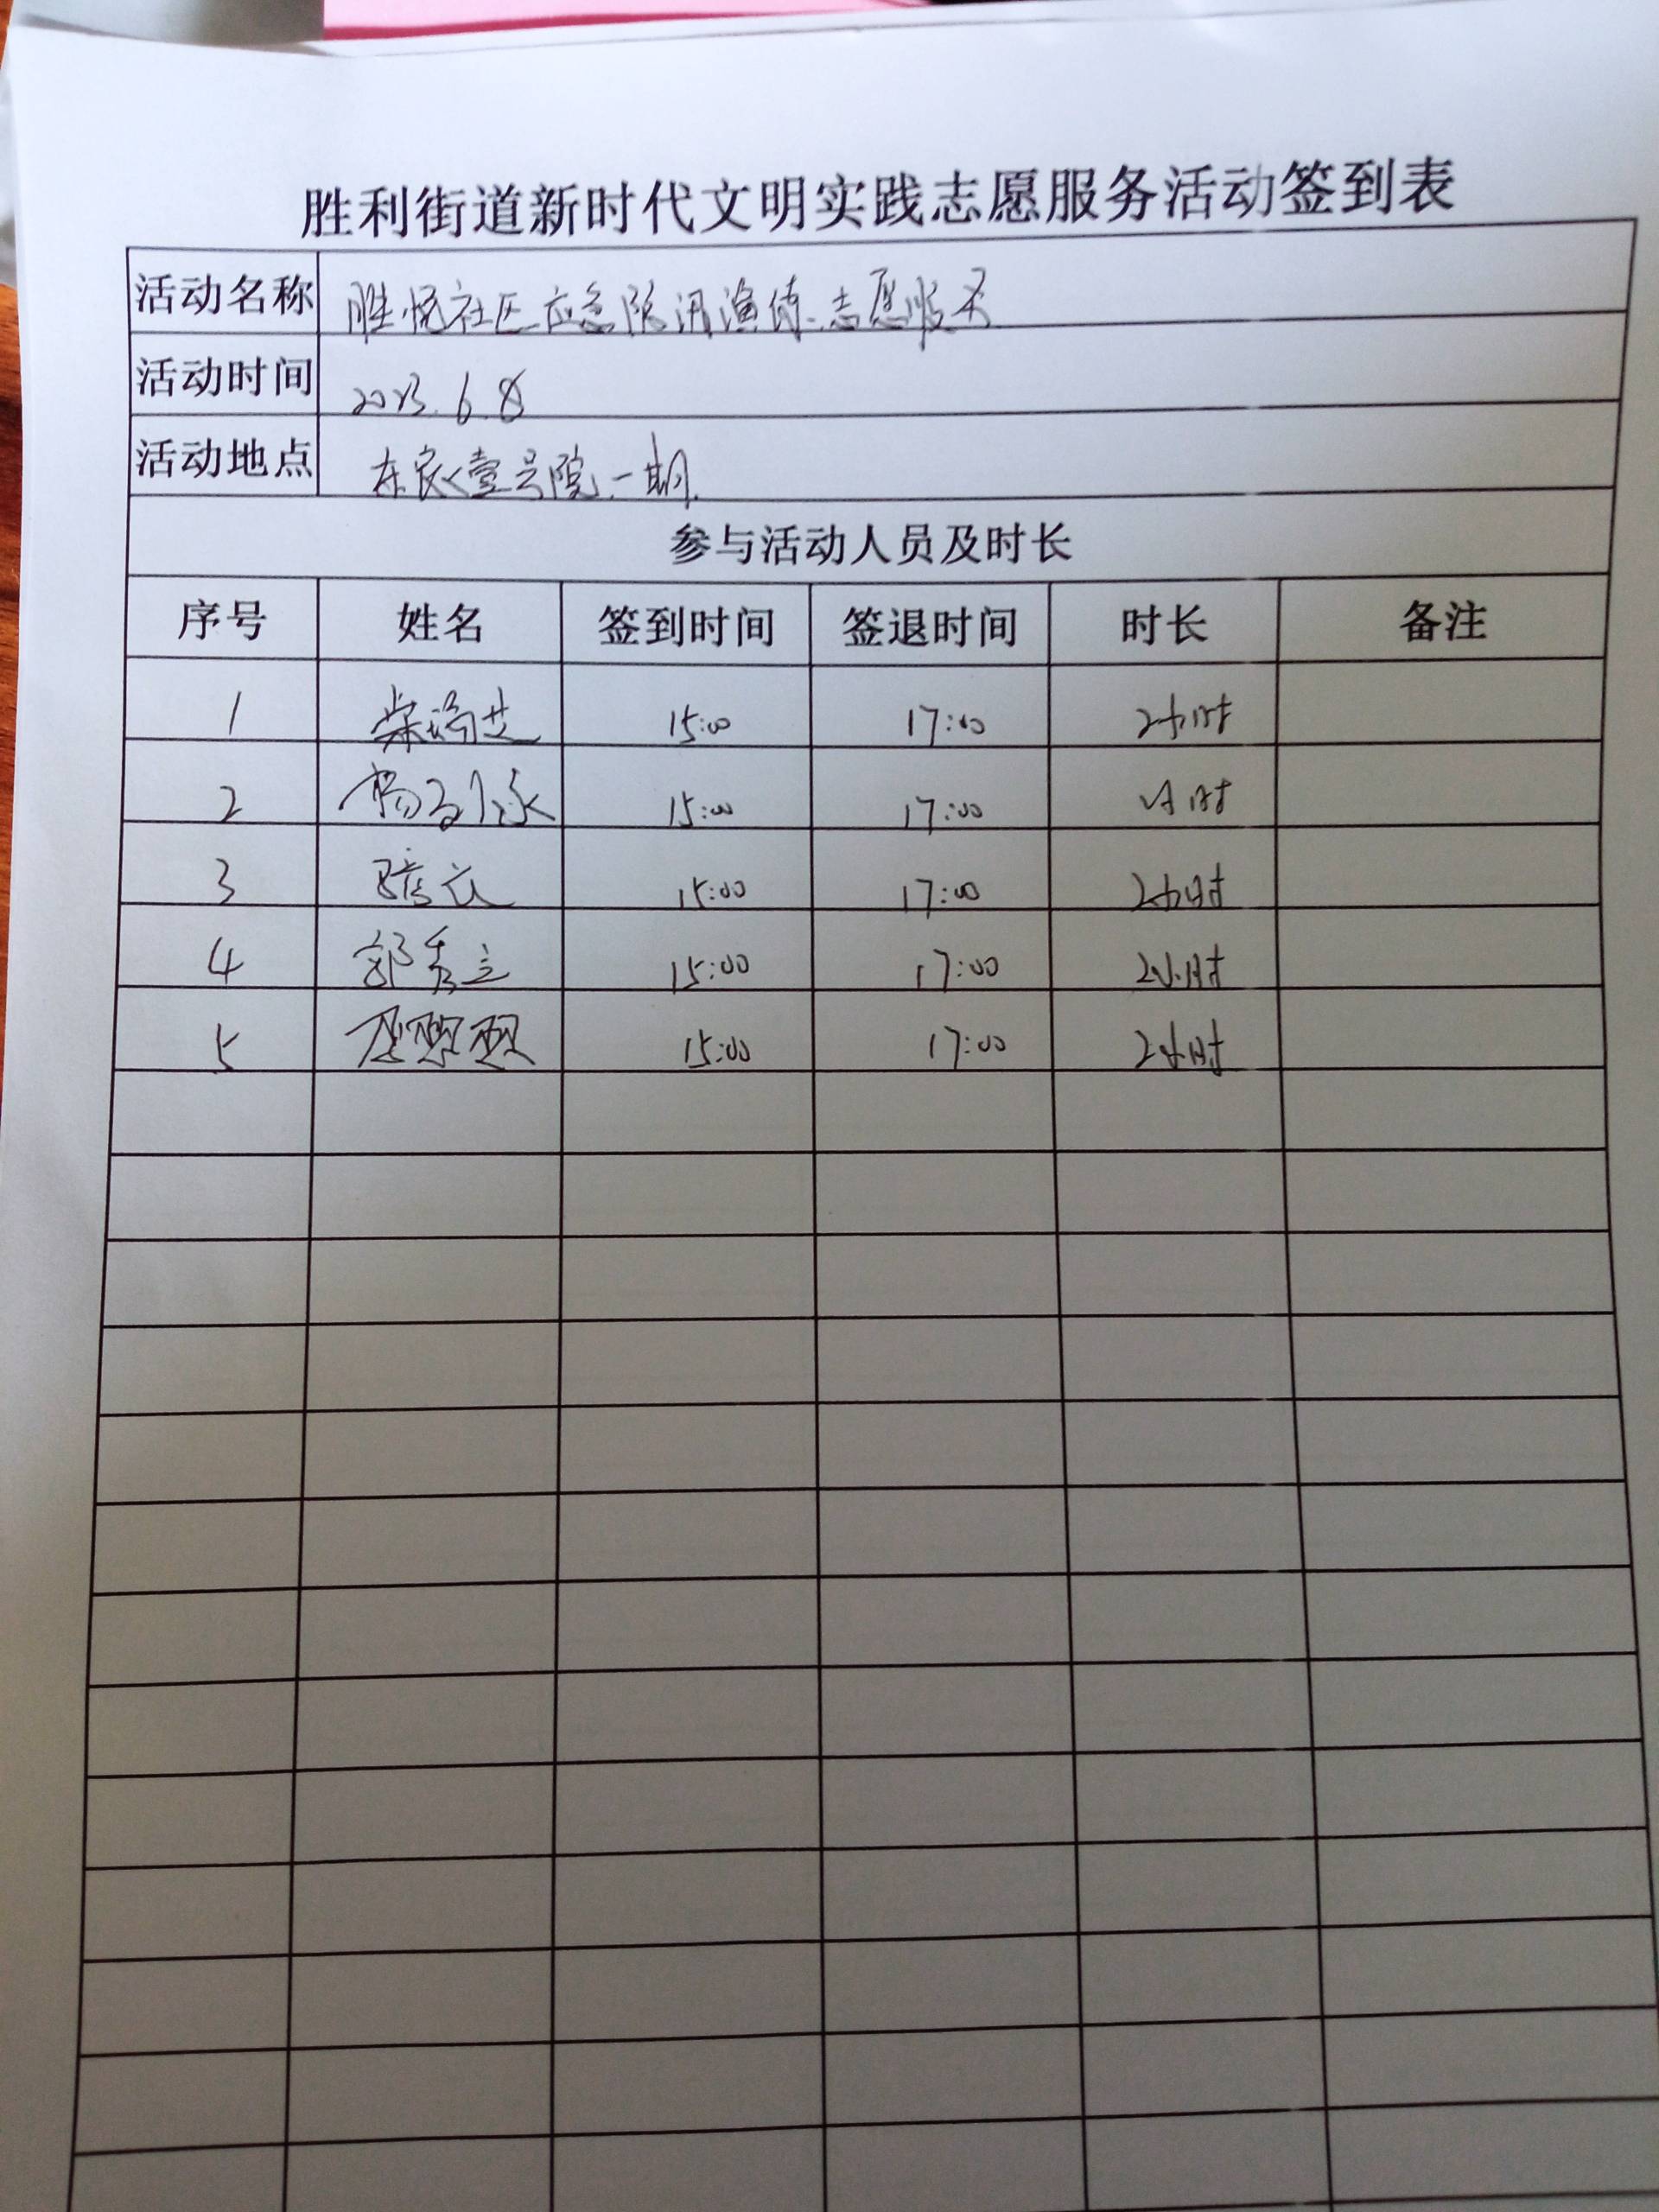 胜利街道新时代文明实践志愿服务活动签到表
活动名称 胜悦社区应急防汛演练志愿服务
活动时间 2023.6.8
活动地点 东宸壹号院一期
参与活动人员及时长
序号 姓名 签到时间 签退时间 时长 备注
1 15:00 17:00 2小时
2 15:00 17:00 2小时
3 15:00 17:00 2小时
4 郭秀立 15:00 17:00 2小时
5 15:00 17:00 2小时